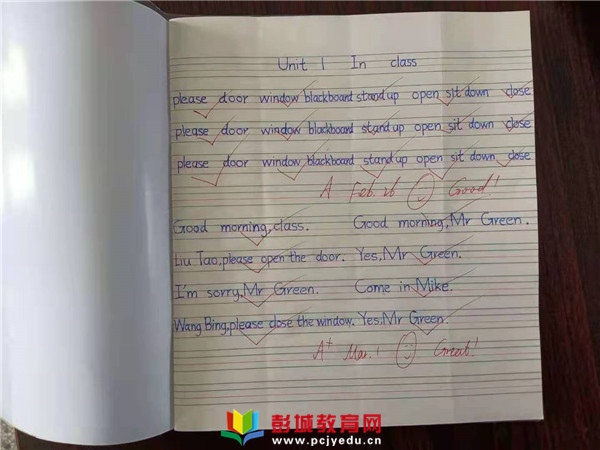 Unit 1 In class
please door window blackboard stand up open sit down close
please door window blackboard stand up open sit down close
please door window blackboard stand up open sit down close
A Feb. 26 Good!
Good morning, class. Good morning, Mr Green.
Liu Tao, please open the door. Yes, Mr Green.
I'm sorry, Mr Green. Come in Mike.
Wang Bing, please close the window. Yes, Mr Green.
A+ Mar. 1 Great!
彭城教育网
www.pcjyedu.cn